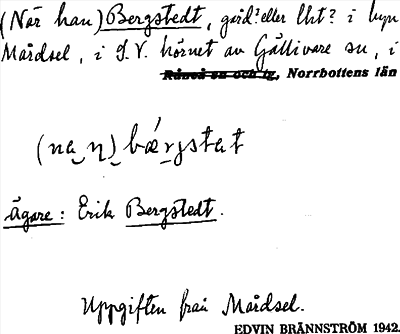 (När han) Bergstedt, gård? eller lht? i byn
Mårdsel, i S.V. hörnet av Gällivare sn, i
Råneå sn och tg, Norrbottens län
(na n) bærgstet
Ägare: Erik Bergstedt.
Uppgiften från Mårdsel.
EDVIN BRÄNNSTRÖM 1942.